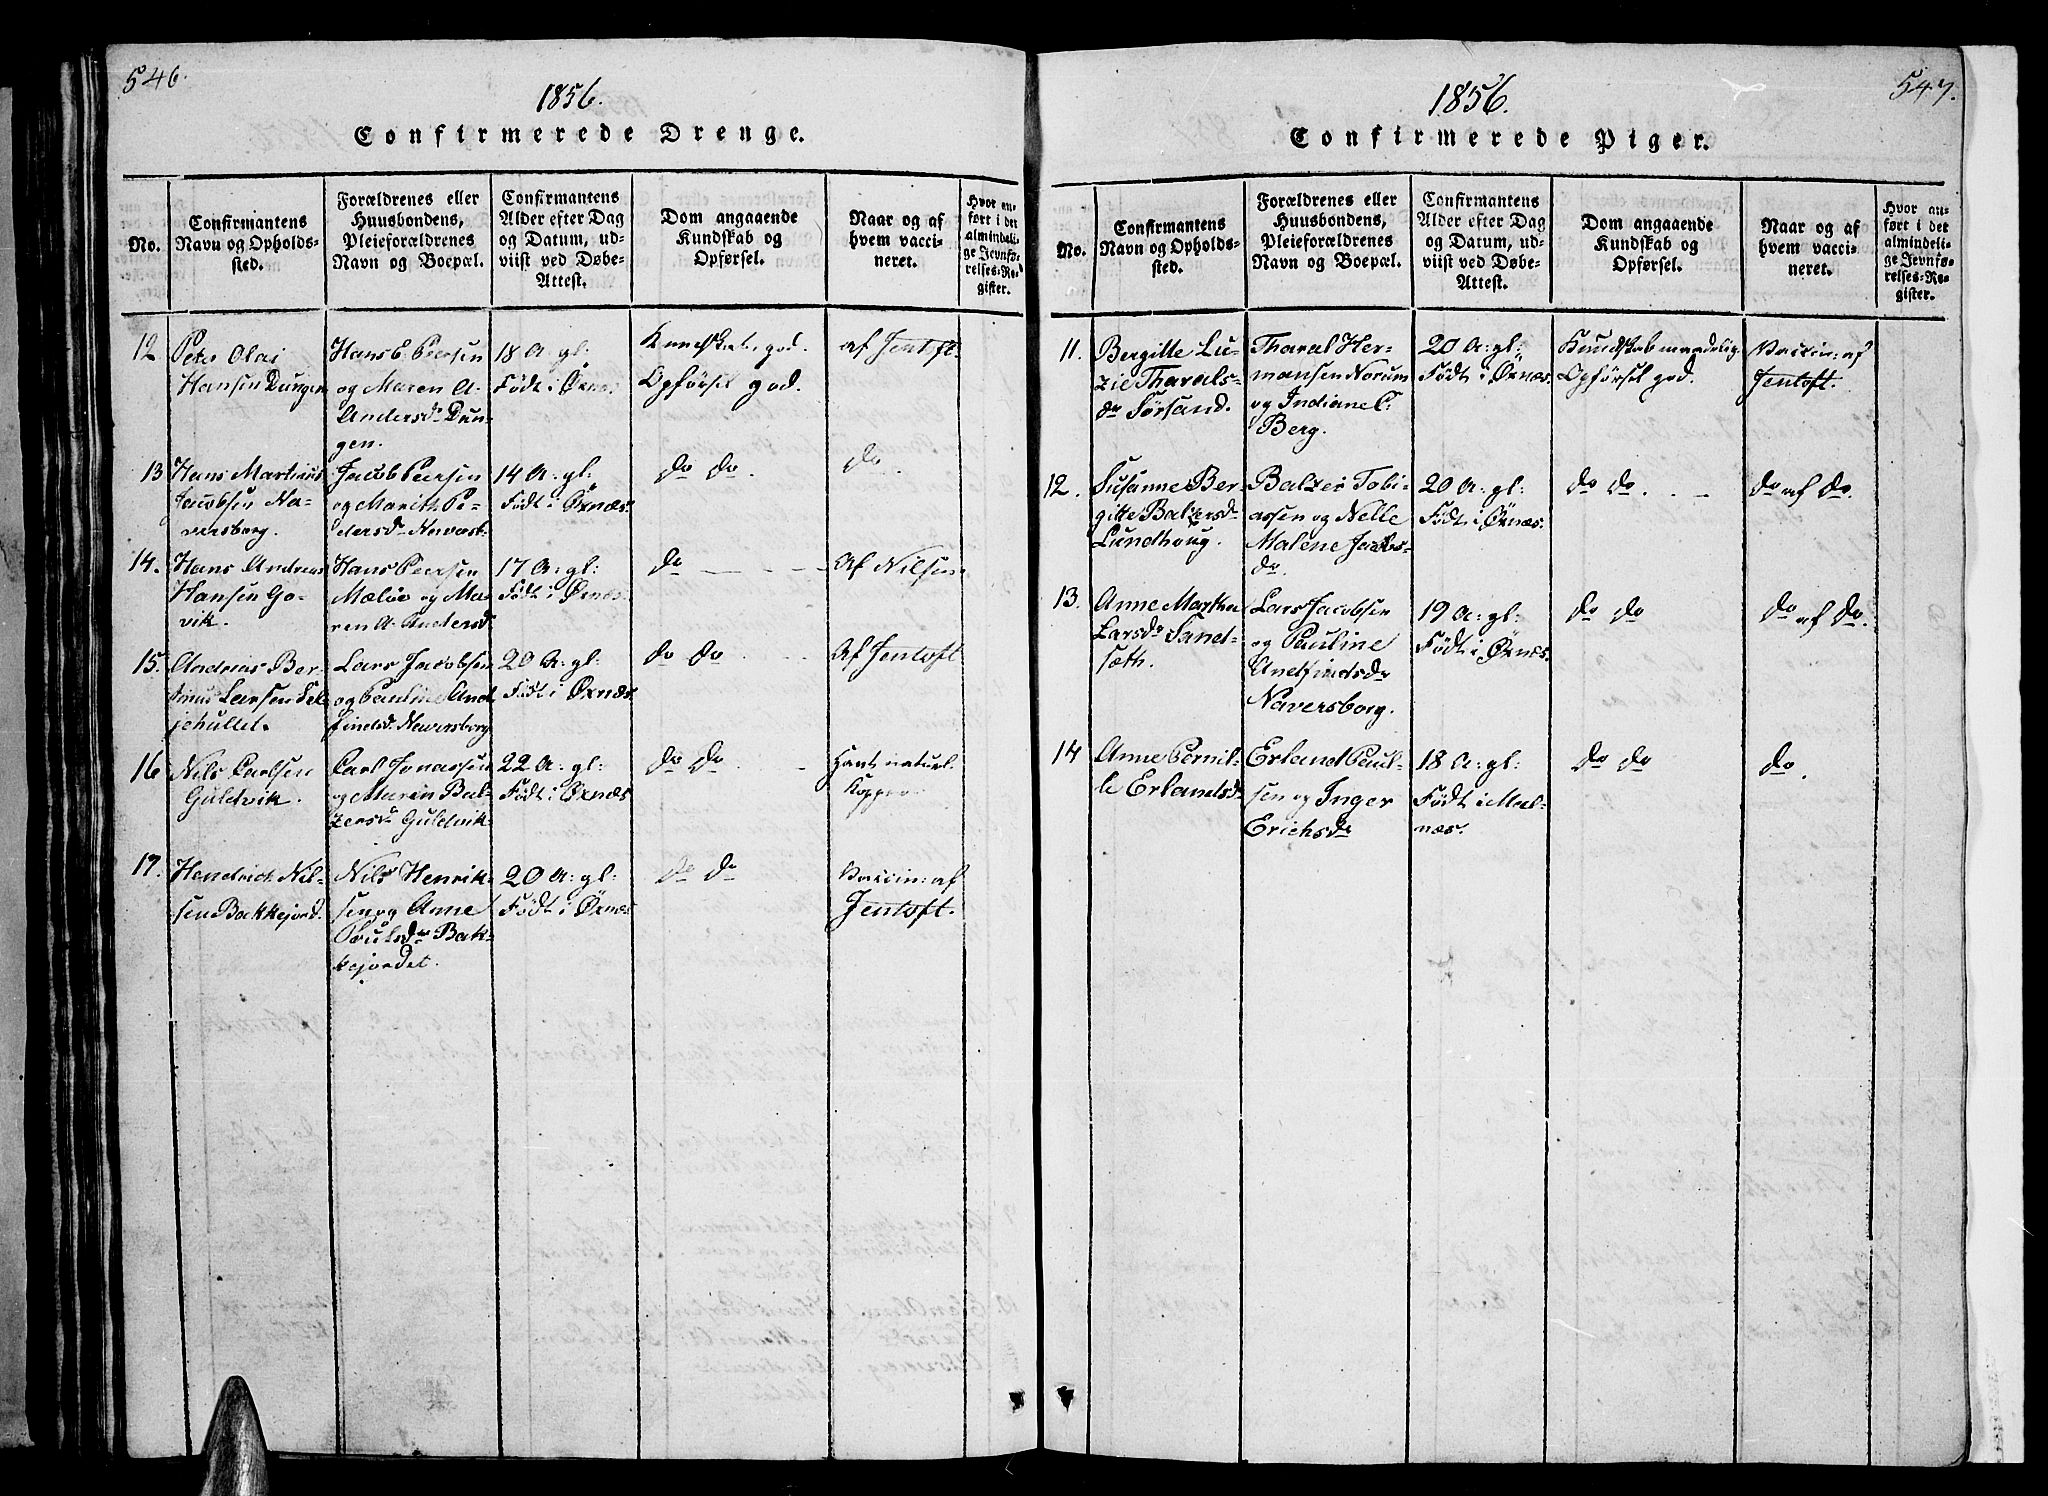 546.
1856.
Confirmerede Drenge.
No.
Confirmantens
Navn og Opholds-
sted.
Forældrenes eller
Huusbondens,
Pleieforældrenes
Navn og Boepæl.
Confirmantens
Alder efter Dag
og Datum, ud-
viist ved Døbe-
Attest.
Dom angaaende
Kundskab og
Opførsel.
Naar og af
hvem vacci-
neret.
Hvor an-
ført i det
almindeli-
ge Jevnfø-
relses-Re-
gister.
12
Peter Olai
Hansen Dungen
Hans P. Peersen
og Maren A.
Andersd. Dun-
gen.
18 A. gl:
Født i Øxnæs
Kundskab god.
Opførsel god.
af Jentoft.
13
Hans Martinus
Jacobsen Na-
versborg.
Jacob Peersen
og Marith Pe-
dersd.
14 A. gl:
Født i Øxnæs.
do do
do.
14.
Hans Andreas
Hansen Go-
vik.
Hans Peersen
Mæløe og Ma-
ren A. Andersd.
17 A. gl:
Født i Øxnæs
do
Af Nilsen
15.
Andreas Ber-
Larsen Sel-
jehullet.
Lars Jacobsen
og Pauline And-
findsd. Naversborg
20 A. gl:
Født i Øxnæs.
do do
Af Jentoft
16
Nils Carlsen
Guldvik.
Carl Jonassen
og Maren Bal-
zersd. Guldvik
22 A. gl:
Født i Øxnæs
do do
Havt naturl.
Kopper
17.
Hendrich Nil-
sen Bakkejord.
Nils Henrik-
sen og Anne
Poulsdr Bak-
kejordet.
20 A: gl:
Født i Øxnæs
do do
Vaccin: af
Jentoft.
547.
1856.
Confirmerede Piger.
No.
Confirmantens
Navn og Opholds-
sted.
Forældrenes eller
Huusbondens,
Pleieforældrenes
Navn og Boepæl.
Confirmantens
Alder efter Dag
og Datum, ud-
viist ved Døbe-
Attest.
Dom angaaende
Kundskab og
Opførsel.
Naar og af
hvem vacci-
neret.
Hvor an-
ført i det
almindeli-
ge Jevnfø-
relses-Re-
gister.
11.
Bergitte Lu-
zie Tharals-
dr Førsand.
Tharal Her-
mansen Norum
og Indiane C.
Berg.
20 A: gl:
Født i Øxnæs.
Kundskab maadelig
Opførsel god.
Vaccin: af
Jentoft.
12.
Susanne Ber-
gitte Balzersd.
Lundhoug.
Balzer Tobi-
assen og Nelle
Malene Jacobs-
dr.
20 A: gl:
Født i Øxnæs.
do do.
do af do.
13.
Anne Martha
Larsdr Sand-
sæth.
Lars Jacobsen
og Pauline
Andfindsdr
Naversborg.
19 A: gl:
Født i Øxnæs.
do do
do af do.
14
Anne Pernil-
le Erlandsd.
Erland Paul-
sen og Inger
Erichsdr
18 A: gl:
Født i Mal-
næs.
do do
do.